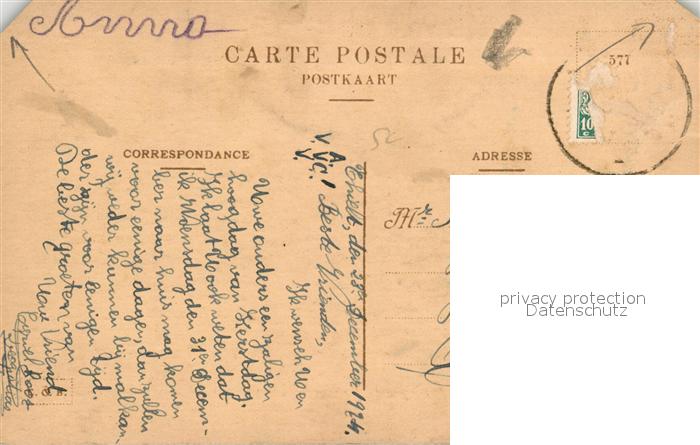 CARTE POSTALE
POSTKAART
577
10
c
CORRESPONDANCE
ADRESSE
Thielt, den 28en December 1924.
Beste Vrienden,
Ik wensch U en
Uwe ouders een zaligen
hoogdag van Kerstdag.
Ik laat U ook weten dat
ik Woensdag den 31en Decem-
ber naar huis mag komen
voor eenige dagen, dan zullen
wij weder kunnen bij malkan
der zijn voor eenigen tijd.
De beste groeten van
Uw Vriend
Mr
privacy protection
Datenschutz